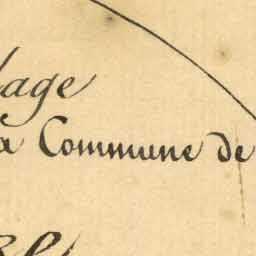 lage
a Commune de